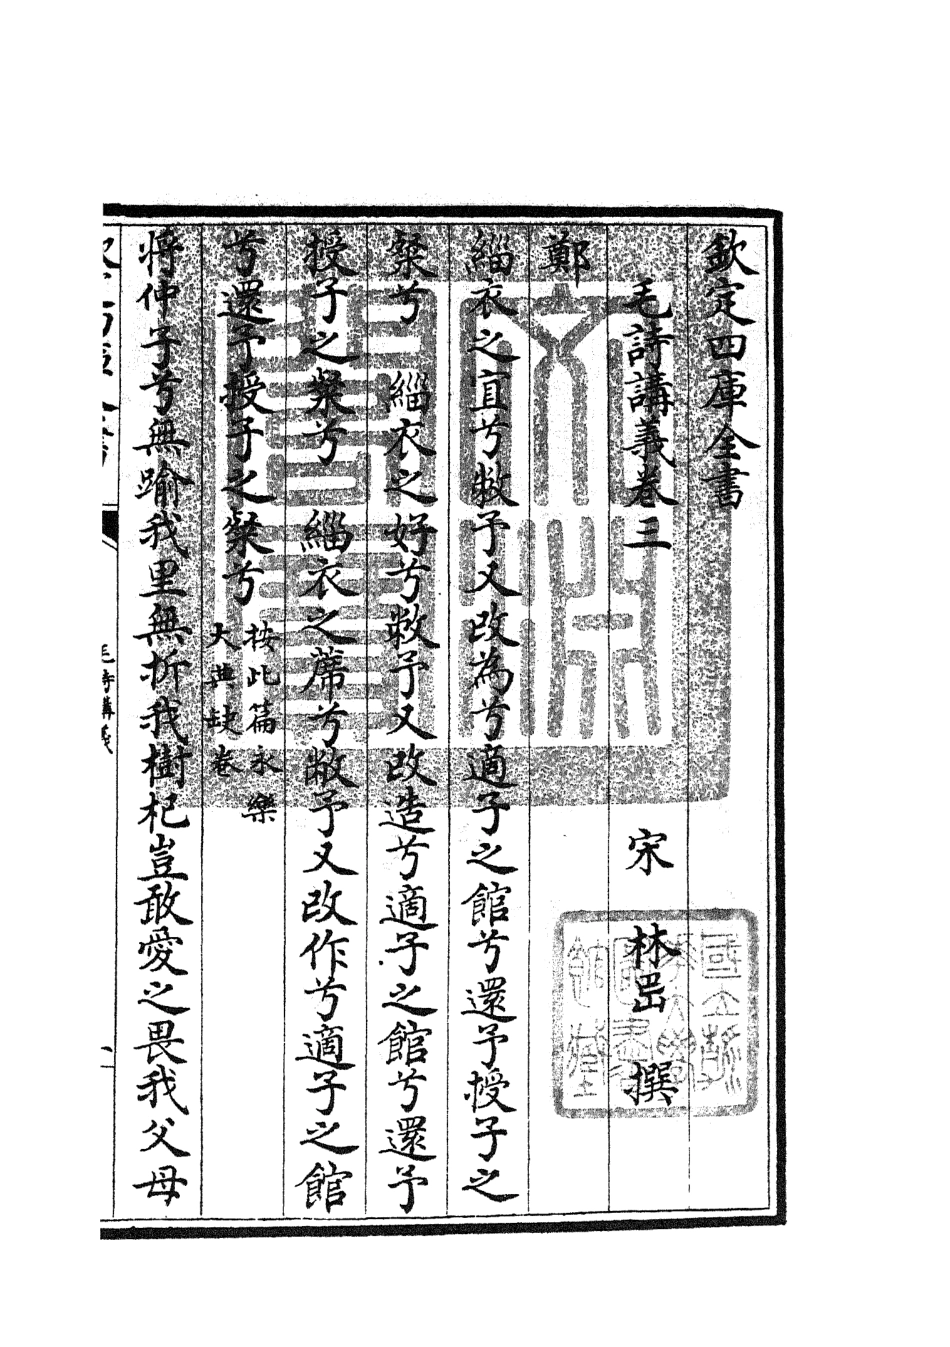 欽定四庫全書
毛詩講義卷三　宋　林岊　撰
鄭
緇衣之宜兮敝予又改為兮適子之館兮還予授子之
粲兮　緇衣之好兮敝予又改造兮適子之館兮還予
授子之粲兮　緇衣之蓆兮敝予又改作兮適子之館
兮還予授子之粲兮
按此篇永樂
大典缺卷
將仲子兮無踰我里無折我樹杞豈敢愛之畏我父母
毛詩講義